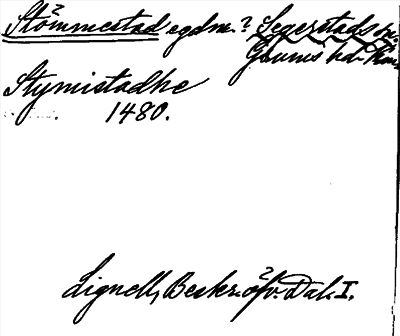 Stömmestad egdm.? Segerstads sn.
Gsums hd.
Stymistadhe
1480.
Lignell, Beskr. öfv. Dal. I.